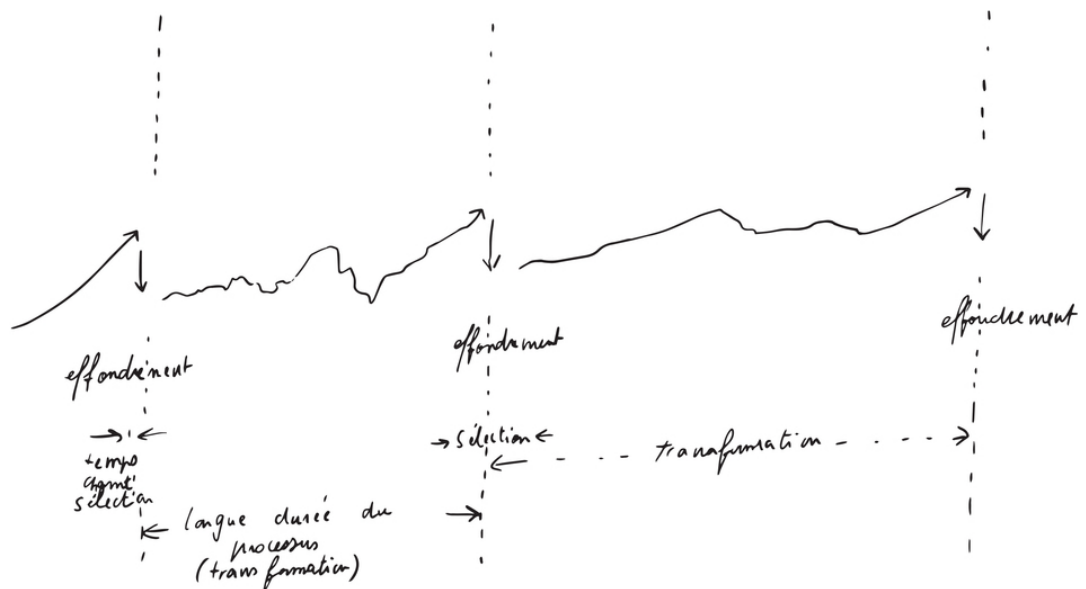 effondrement
effondrement
effondrement
temps
sélection
sélection
transformation
longue durée du
processus
(transformation)